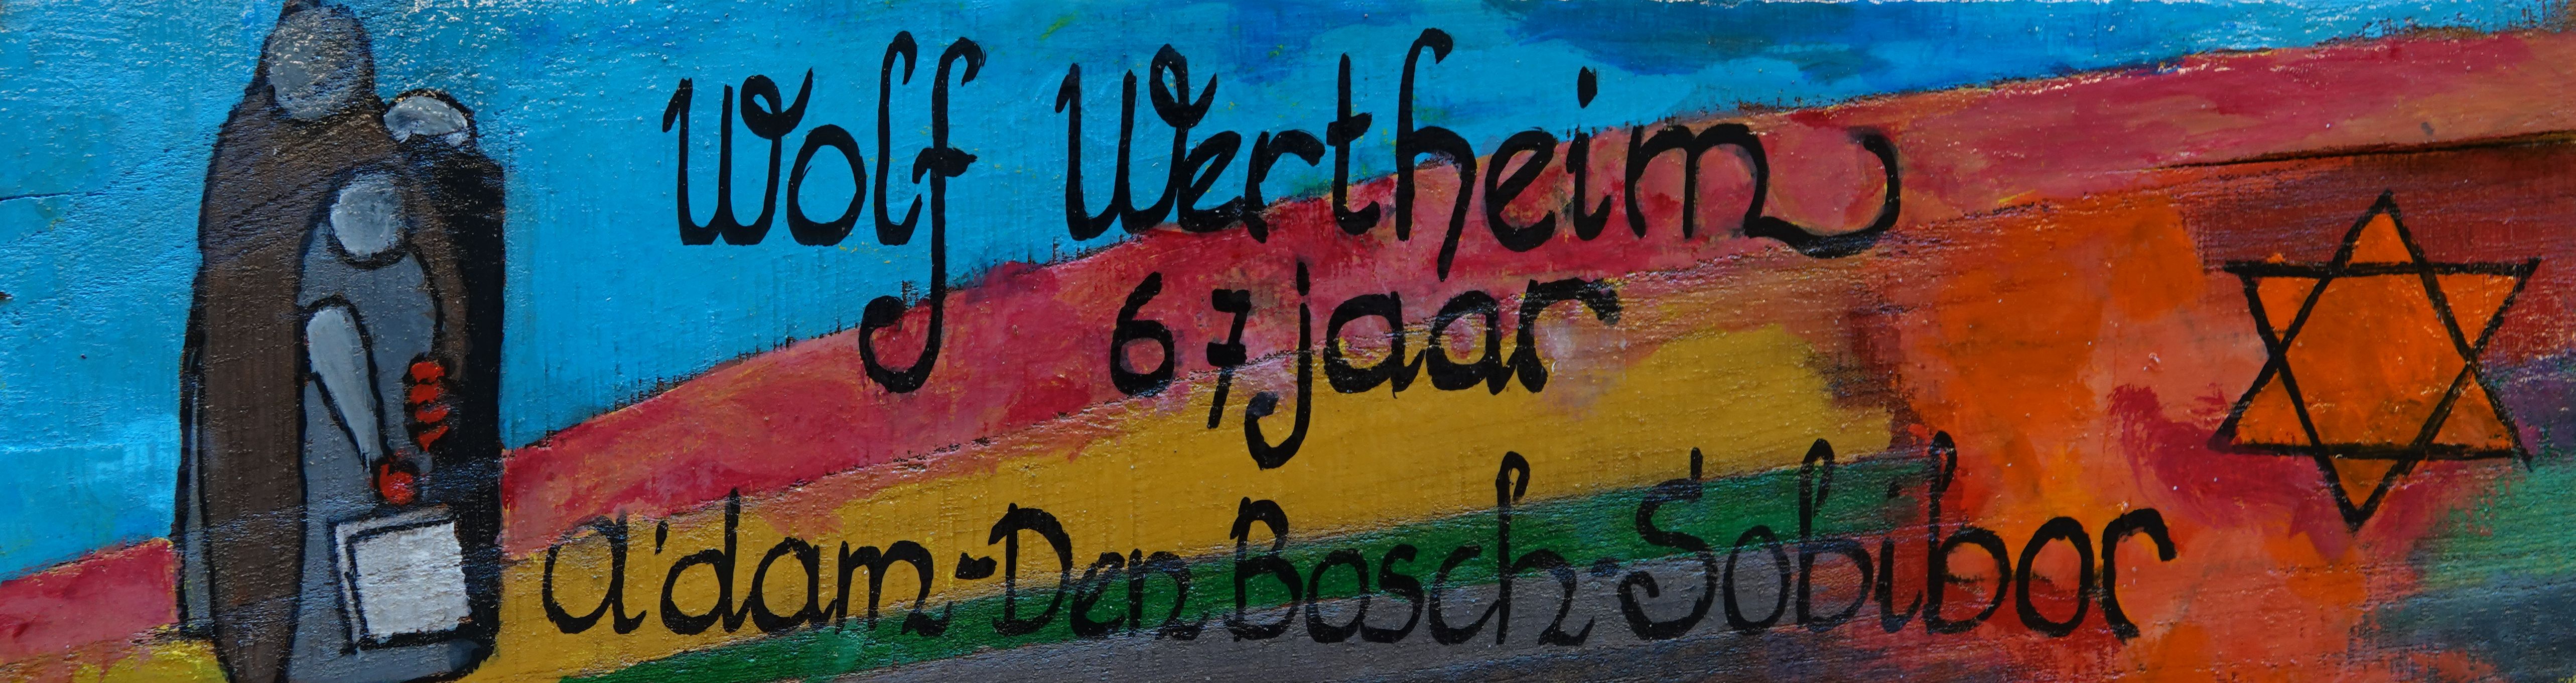 Wolf Wertheim
67 jaar
A'dam-Den Bosch-Sobibor